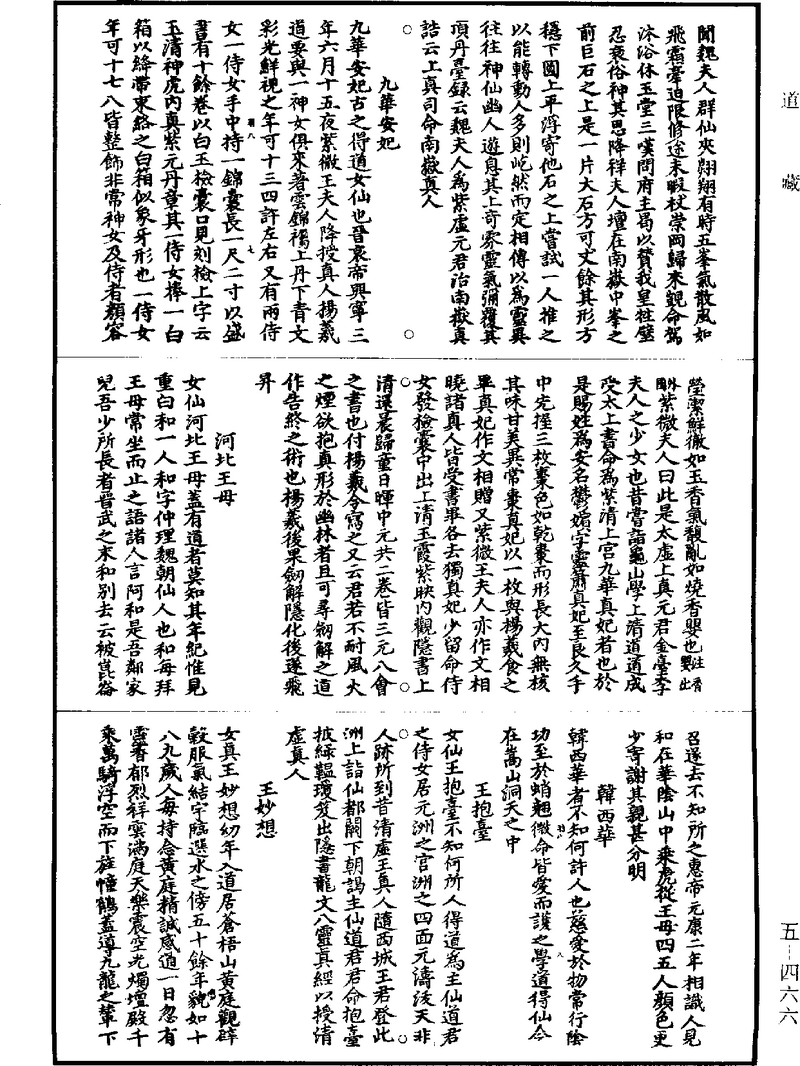 道藏
聞魏夫人群仙夾翺翔有時五峯氣散風如
飛霜蹇迫限修途未暇杖崇岡歸來覩命駕
沐浴休玉堂三嘆問府主曷以贊我皇牲璧
忍褻俗神其思降祥夫人壇在南嶽中峯之
前巨石之上是一片大石方可丈餘其形方
穩下圓上平浮寄他石之上嘗試一人推之
以能轉動人多則屹然而定相傳以為靈異
往往神仙幽人遊息其上奇雰靈氣彌覆其
頂丹臺録云魏夫人為紫虛元君治南嶽真
誥云上真司命南嶽真人
九華安妃
九華安妃古之得道女仙也晉哀帝興寧三
年六月十五夜紫微王夫人降授真人楊羲
道要與一神女俱來著雲錦襡上丹下青文
彩光鮮視之年可十三四許左右又有兩侍
女一侍女手中持一錦囊長一尺二寸以盛
書有十餘卷以白玉檢囊口見刻檢上字云
玉清神虎内真紫元丹章其一侍女捧一白
箱以絳帶束絡之白箱似象牙形也一侍女
年可十七八皆整飾非常神女及侍者顏容
瑩潔鮮徹如玉香氣馥亂如燒香嬰也
紫微夫人曰此是太虛上真元君金臺李
夫人之少女也昔嘗詣龜山學上清道道成
受太上書命為紫清上宫九華真妃者也於
是賜姓為安名鬱嬪字靈簫真妃至良久手
中先握三枚棗色如乾棗而形長大内無核
其味甘美異常棗真妃以一枚與楊羲食之
畢真妃作文相贈又紫微王夫人亦作文相
曉諸真人皆受書畢各去獨真妃少留命侍
女發檢囊中出上清玉霞紫映内觀隱書上
清還晨歸童日暉中元共二卷皆三元八會
之書也付楊羲令寫之又云君若不耐風火
之煙欲抱真形於幽林者且可尋劒解之道
作告終之術也楊羲後果劒解隱化後遂飛
昇
河北王母
女仙河北王母蓋有道者莫知其年紀惟見
重白和一人和字仲理魏朝仙人也和每拜
王母常坐而止之語諸人言阿和是吾鄰家
兒吾少所長者晉武之末和别去云被崑崙
召遂去不知所之惠帝元康二年相識人見
和在華陰山中乘虎從王母四五人顏色更
少寄謝其親甚分明
韓西華
韓西華者不知何許人也慈愛於物常行陰
功至於蛸翹微命皆愛而護之學道得仙今
在嵩山洞天之中
王抱臺
女仙王抱臺不知何所人得道為主仙道君
之侍女居元洲之宫洲之四面元濤浹天非
人跡所到昔清虛王真人隨西城王君登此
洲上詣仙都闕下朝謁主仙道君君命抱臺
披緑韞瓊笈出隱書龍文八靈真經以授清
虛真人
王妙想
女真王妙想幼年入道居蒼梧山黄庭觀辟
穀服氣結宇臨選水之傍五十餘年貌如十
八九歲人每持念黄庭精誠感通一日忽有
靈香郁烈祥雲滿庭天樂震空光燭壇殿千
乘萬騎浮空而下旌幢鶴蓋導九龍之輦下
五—四六六